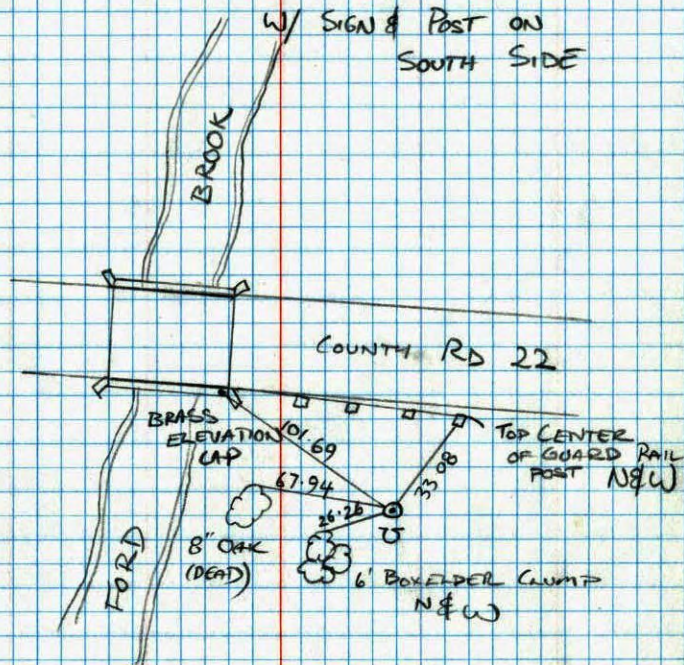 W/ SIGN & POST ON
SOUTH SIDE
BROOK
COUNTY RD 22
BRASS
ELEVATION
CAP
101.69
TOP CENTER
OF GUARD RAIL
POST N&W
33.08
67.94
26.26
8" OAK
(DEAD)
6' BOXELDER CLUMP
N&W
FORD